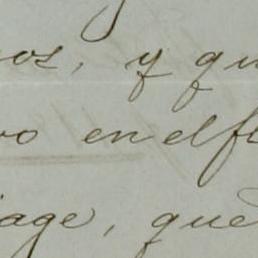 nos, y qu
vo en el fl
iage, que